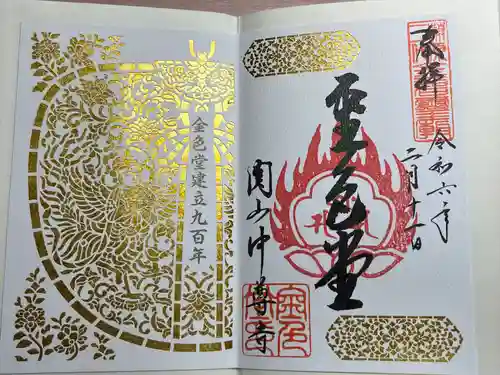 奉拝
令和六年
二月十一日
金色堂
関山中尊寺
金色堂建立九百年